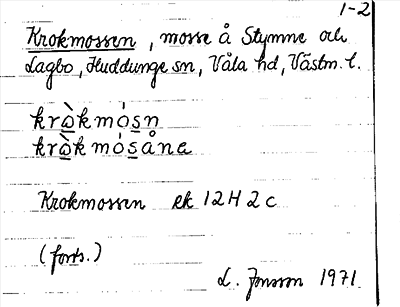 1-2
Krokmossen, mosse å Stymne och
Lagbo, Huddunge sn, Våla hd, Västm. l.
kròkmósn
kròkmósåna
Krokmossen ek 12H2c
(forts.)
L. Jonsson 1971